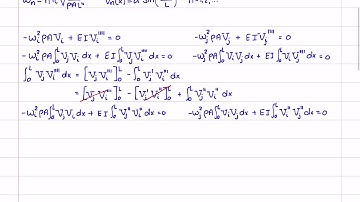 -ωᵢ²ρAVᵢ + EIVᵢ'''' = 0    -ωⱼ²ρAVⱼ + EIVⱼ'''' = 0
-ωᵢ²ρA∫₀ᴸ VⱼVᵢ dx + EI∫₀ᴸ VⱼVᵢ'''' dx = 0    -ωⱼ²ρA∫₀ᴸ VᵢVⱼ dx + EI∫₀ᴸ VᵢVⱼ'''' dx = 0
∫₀ᴸ VⱼVᵢ'''' dx = [VⱼVᵢ''']₀ᴸ - ∫₀ᴸ Vⱼ'Vᵢ''' dx
= [VⱼVᵢ''']₀ᴸ - [Vⱼ'Vᵢ'']₀ᴸ + ∫₀ᴸ Vⱼ''Vᵢ'' dx
-ωᵢ²ρA∫₀ᴸ VⱼVᵢ dx + EI∫₀ᴸ Vⱼ''Vᵢ'' dx = 0    -ωⱼ²ρA∫₀ᴸ VᵢVⱼ dx + EI∫₀ᴸ Vᵢ''Vⱼ'' dx = 0